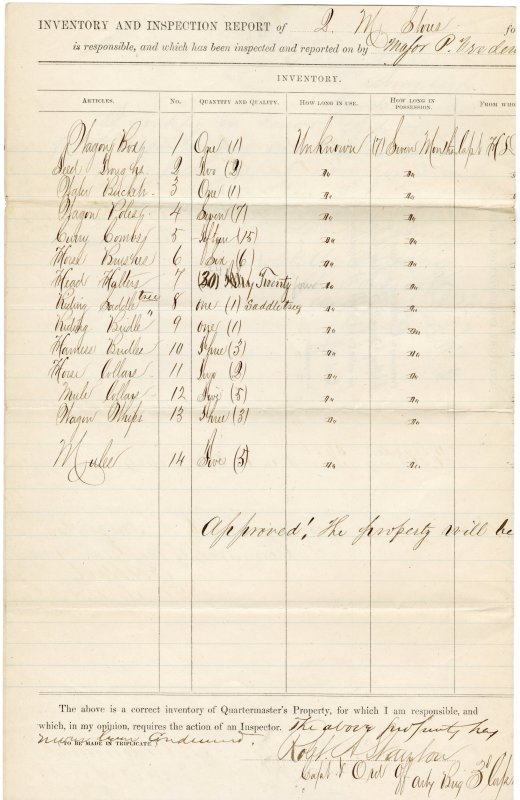 INVENTORY AND INSPECTION REPORT of Q. M. Stores fo
is responsible, and which has been inspected and reported on by Major P.
INVENTORY.
ARTICLES. No. QUANTITY AND QUALITY. HOW LONG IN USE. HOW LONG IN POSSESSION. FROM WHO
Wagon Body 1 One (1) Unknown (7) Seven Months Capt
Feed Troughs 2 Two (2) Do Do
Water Buckets 3 One (1) Do Do
Wagon Poles 4 Seven (7) Do Do
Curry Combs 5 Fifteen (15) Do Do
Horse Brushes 6 Six (6) Do Do
Head Halters 7 (30) Twenty Do Do
Riding Saddle tree 8 one (1) Saddle tree Do Do
Riding Bridle " 9 one (1) Do Do
Harness Bridles 10 Three (3) Do Do
Horse Collars 11 Two (2) Do Do
Mule Collars 12 Five (5) Do Do
Wagon Whips 13 Three (3) Do Do
Mules 14 Five (5) Do Do
Approved! The property will be
The above is a correct inventory of Quartermaster's Property, for which I am responsible, and
which, in my opinion, requires the action of an Inspector. The above property has
never been Condemned.
[TO BE MADE IN TRIPLICATE.]
Robt. A. Stanton
Capt & Ord Off Arty Brig 3d Corps